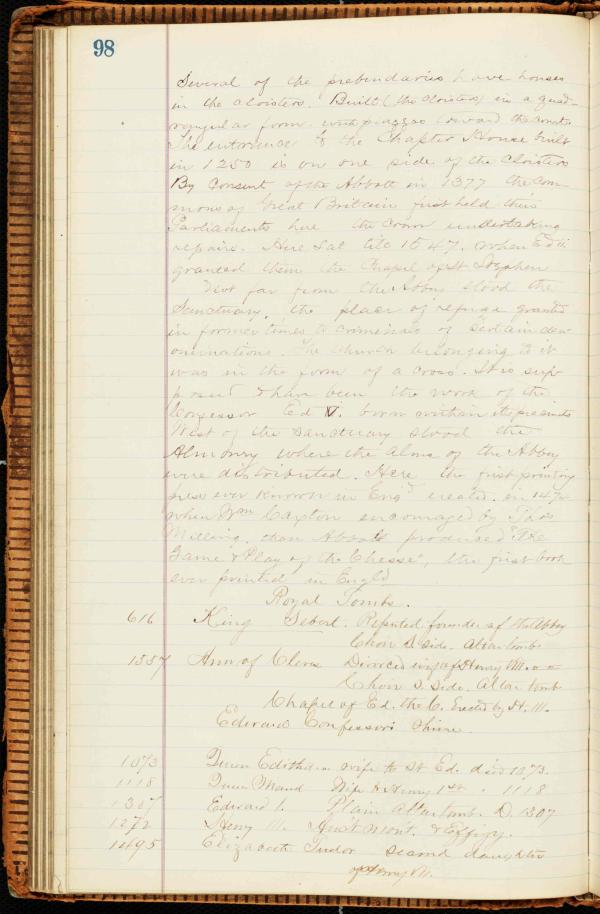 98
Several of the prebendaries have houses
in the Cloisters. Built (the Cloisters) in a quad-
rangular form with piazzas toward the
The entrance to the Chapter House built
in 1250 is on one side of the Cloisters
By Consent of the Abbott in 1377 the Com-
mons of Great Britain first held their
Parliaments here the Crown undertaking
repairs. Here Sat till 1547. when Ed
granted them the Chapel of St Stephen
Not far from the Abbey stood the
Sanctuary, the place of refuge granted
in former times to criminals of Certain den-
ominations. The Church belonging to it
was in the form of a cross. It is sup-
posed to have been the work of the
Confessor Ed V. born within its precincts
West of the Sanctuary stood the
Almonry where the alms of the Abbey
were distributed. Here the first printing
ever known in Eng erected. in 147
when Wm Caxton encouraged by Thos
Milling, then Abbott produced "The
Game & Play of the Chesse", the first book
ever printed in Engld
Royal Tombs.
616 King Sebert. Reputed founder of the Abbey
Choir S. side. Altar tomb
1557 Ann of Cleves Divorced wife of Henry VIII.
Choir S. Side. Altar tomb
Chapel of Ed. the C. Erected by H. III.
Edward Confessors Shrine.
1073 Queen Editha wife to St Ed. died 1073.
1118 Queen Maud Wife to Henry 1st. 1118
1307 Edward 1. Plain Altar tomb. D. 1307
1272 Henry III. Mont. & Effigy.
1495 Elizabeth Tudor second daughter
of Henry VII.